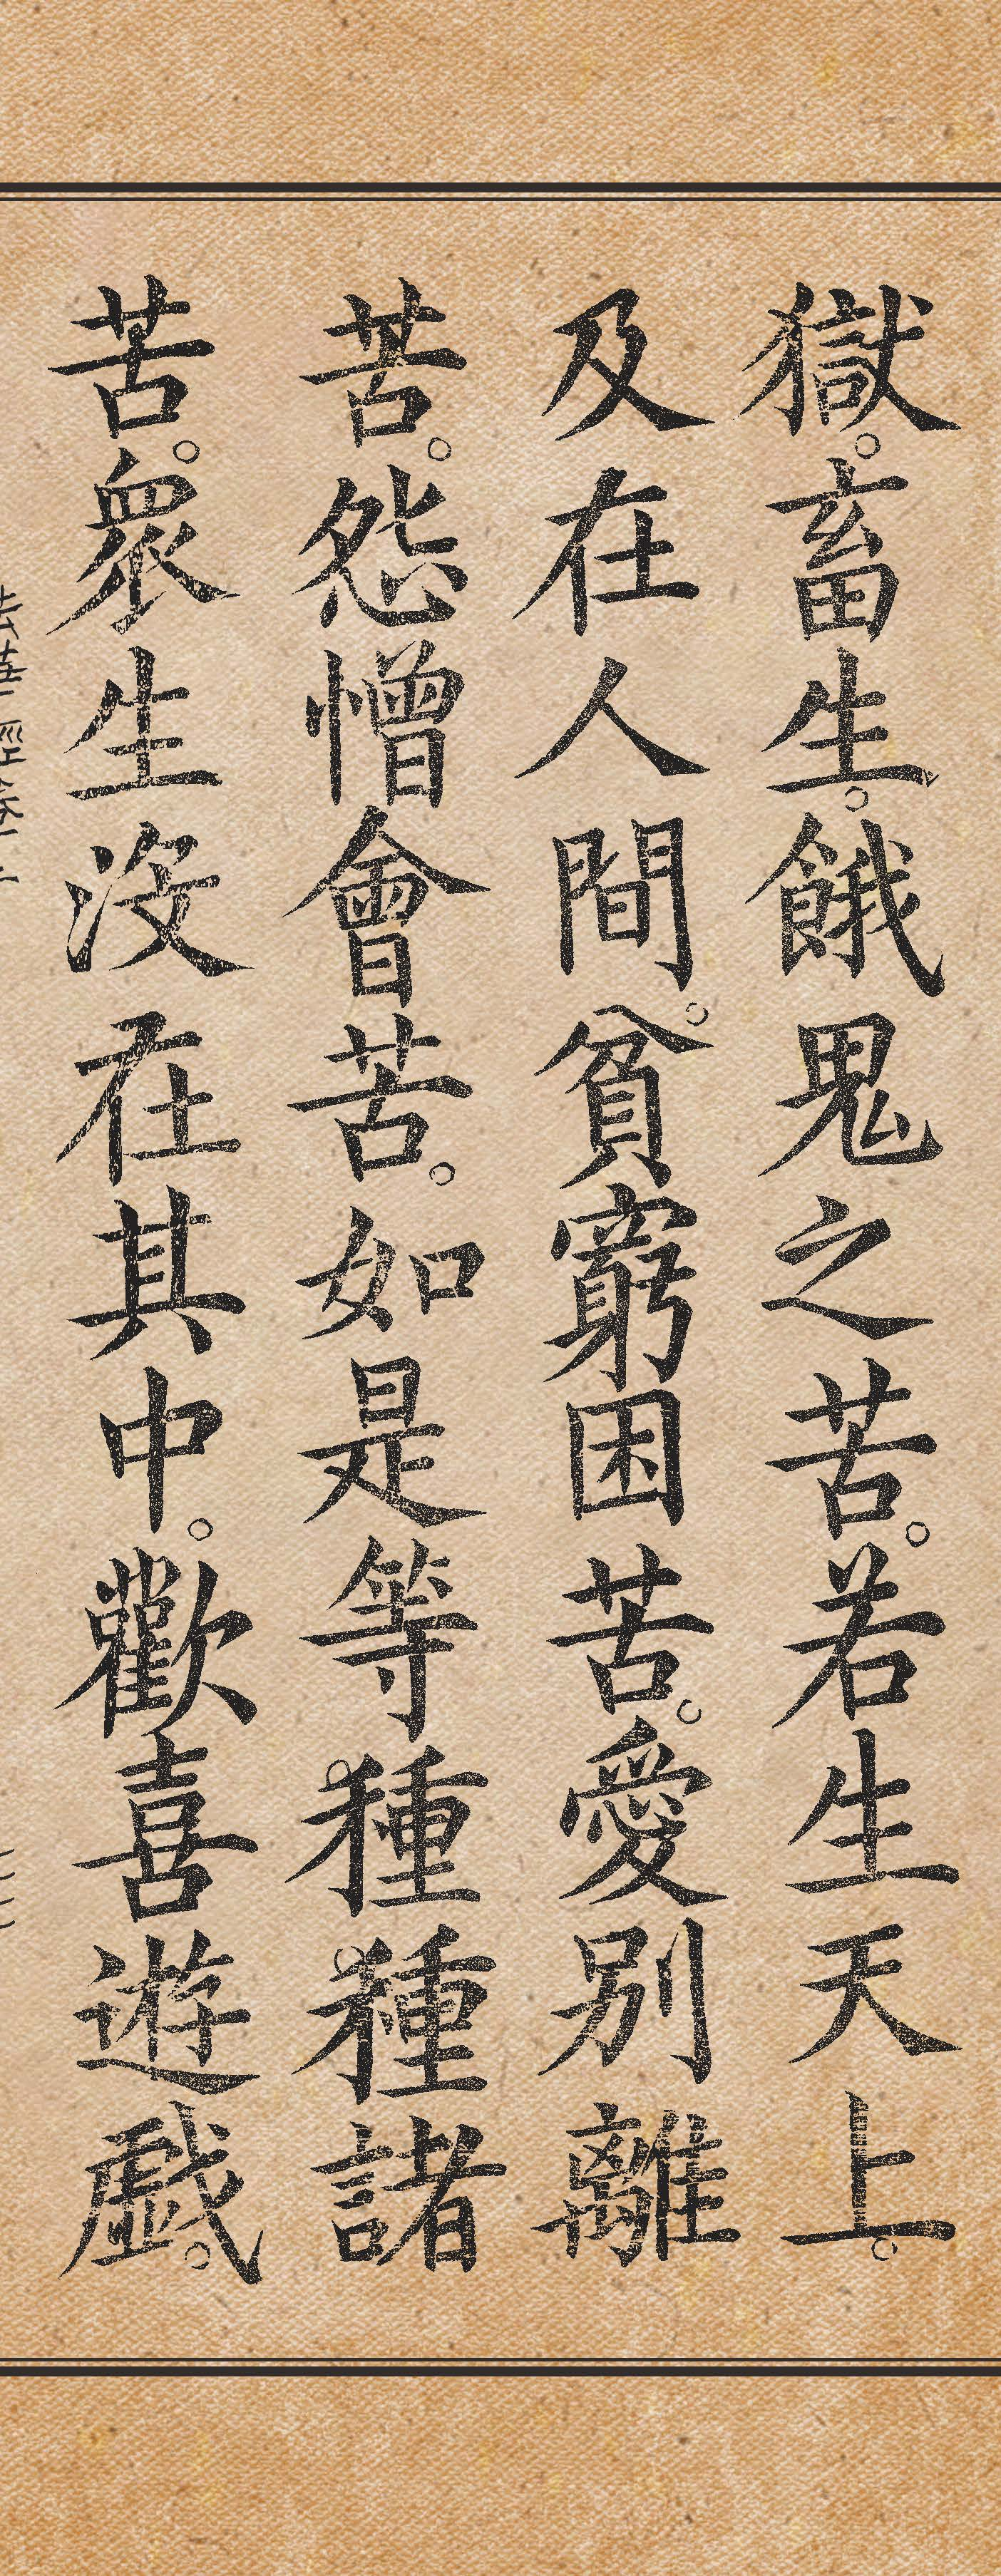 獄。畜生。餓鬼之苦。若生天上。
及在人間。貧窮困苦。愛別離
苦。怨憎會苦。如是等種種諸
苦。衆生没在其中。歡喜遊戲。